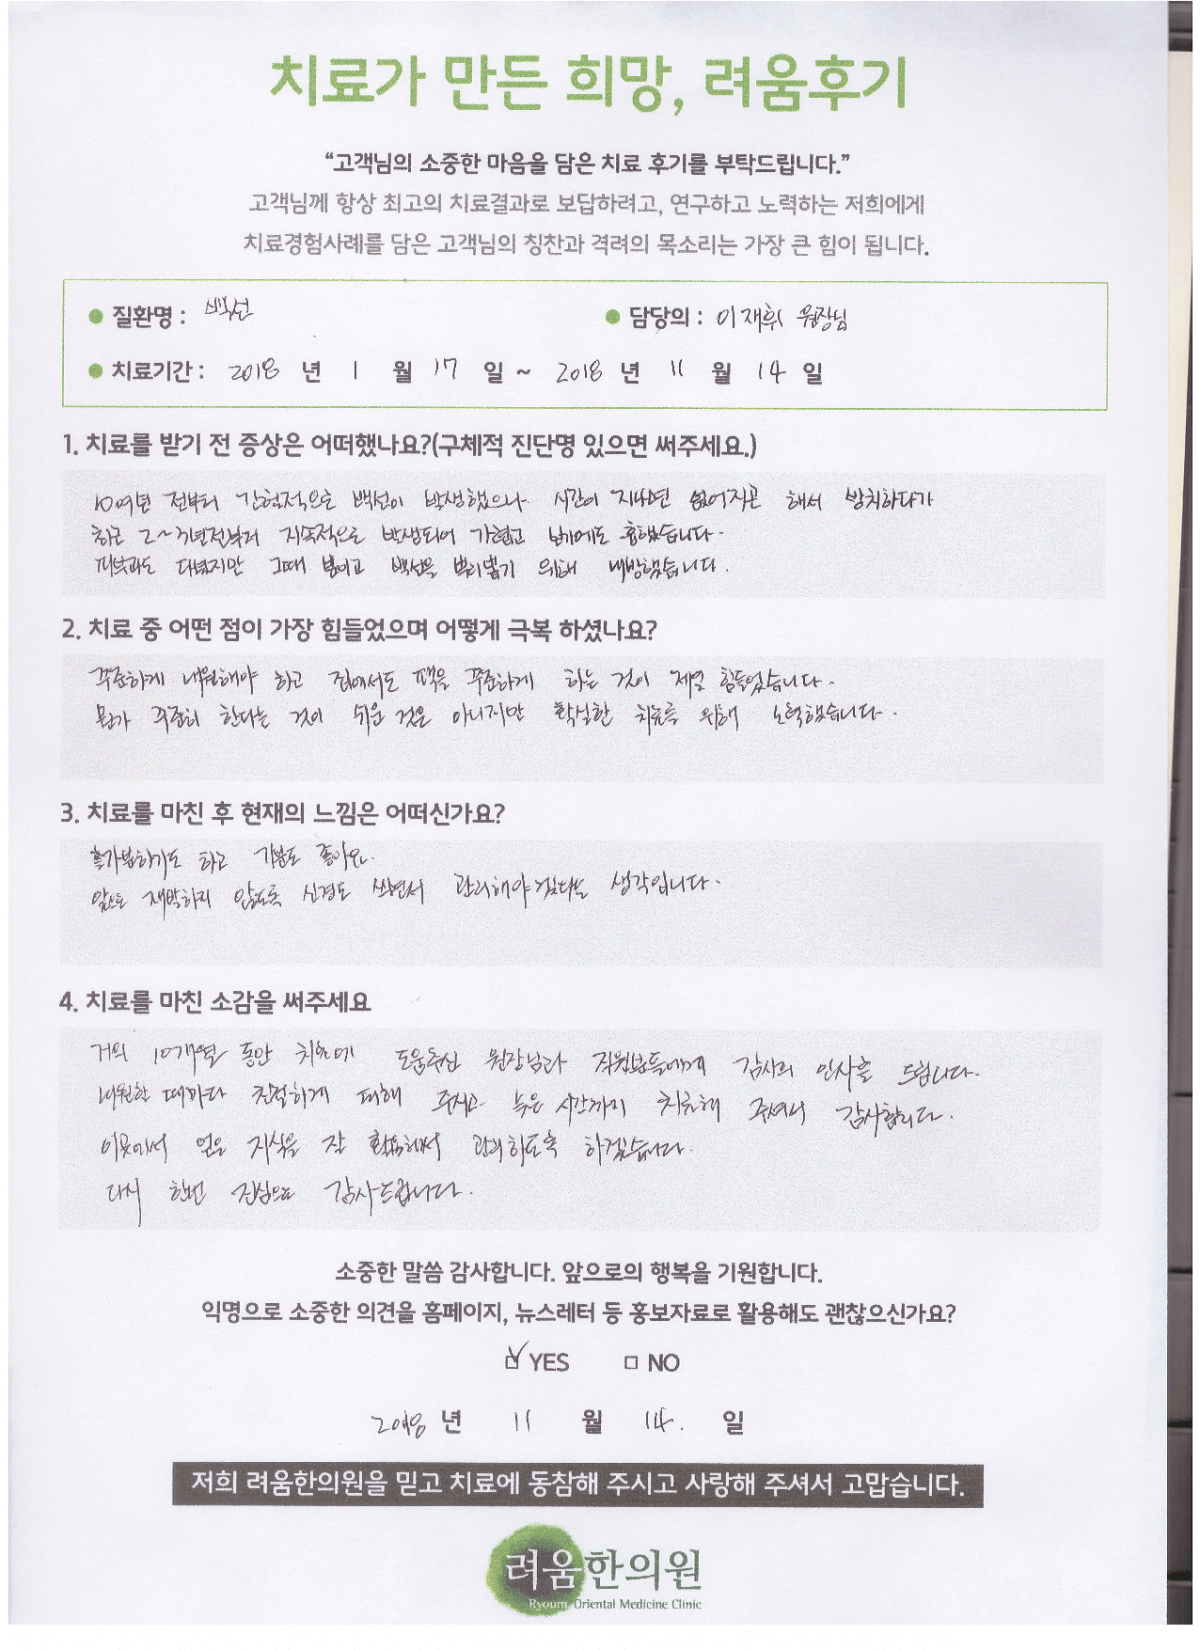 치료가 만든 희망, 려움후기
“고객님의 소중한 마음을 담은 치료 후기를 부탁드립니다.”
고객님께 항상 최고의 치료결과로 보답하려고, 연구하고 노력하는 저희에게
치료경험사례를 담은 고객님의 칭찬과 격려의 목소리는 가장 큰 힘이 됩니다.
● 질환명 : 백선 ● 담당의 : 이재휘 원장님
● 치료기간 : 2018 년 1 월 17 일 ~ 2018 년 11 월 14 일
1. 치료를 받기 전 증상은 어떠했나요?(구체적 진단명 있으면 써주세요.)
10여년 전부터 간헐적으로 백선이 발생했으나 시간이 지나면 없어지곤 해서 방치하다가
최근 2~3년전부터 지속적으로 발생되어 가렵고 보기에도 흉했습니다.
피부과도 다녔지만 그때 뿐이고 백선을 뿌리뽑기 위해 내방했습니다.
2. 치료 중 어떤 점이 가장 힘들었으며 어떻게 극복 하셨나요?
꾸준하게 내원해야 하고 집에서도 팩을 꾸준하게 하는 것이 제일 힘들었습니다.
뭔가 꾸준히 한다는 것이 쉬운 것은 아니지만 확실한 치료를 위해 노력했습니다.
3. 치료를 마친 후 현재의 느낌은 어떠신가요?
홀가분하기도 하고 기분도 좋아요.
앞으로 재발하지 않도록 신경도 쓰면서 관리해야겠다는 생각입니다.
4. 치료를 마친 소감을 써주세요
거의 10개월 동안 치료에 도움주신 원장님과 직원분들에게 감사의 인사를 드립니다.
내원한 때마다 친절하게 대해 주시고 늦은 시간까지 치료해 주셔서 감사합니다.
이곳에서 얻은 지식을 잘 활용해서 관리하도록 하겠습니다.
다시 한번 진심으로 감사드립니다.
소중한 말씀 감사합니다. 앞으로의 행복을 기원합니다.
익명으로 소중한 의견을 홈페이지, 뉴스레터 등 홍보자료로 활용해도 괜찮으신가요?
☑ YES □ NO
2018 년 11 월 14. 일
저희 려움한의원을 믿고 치료에 동참해 주시고 사랑해 주셔서 고맙습니다.
려움한의원
Ryoum Oriental Medicine Clinic